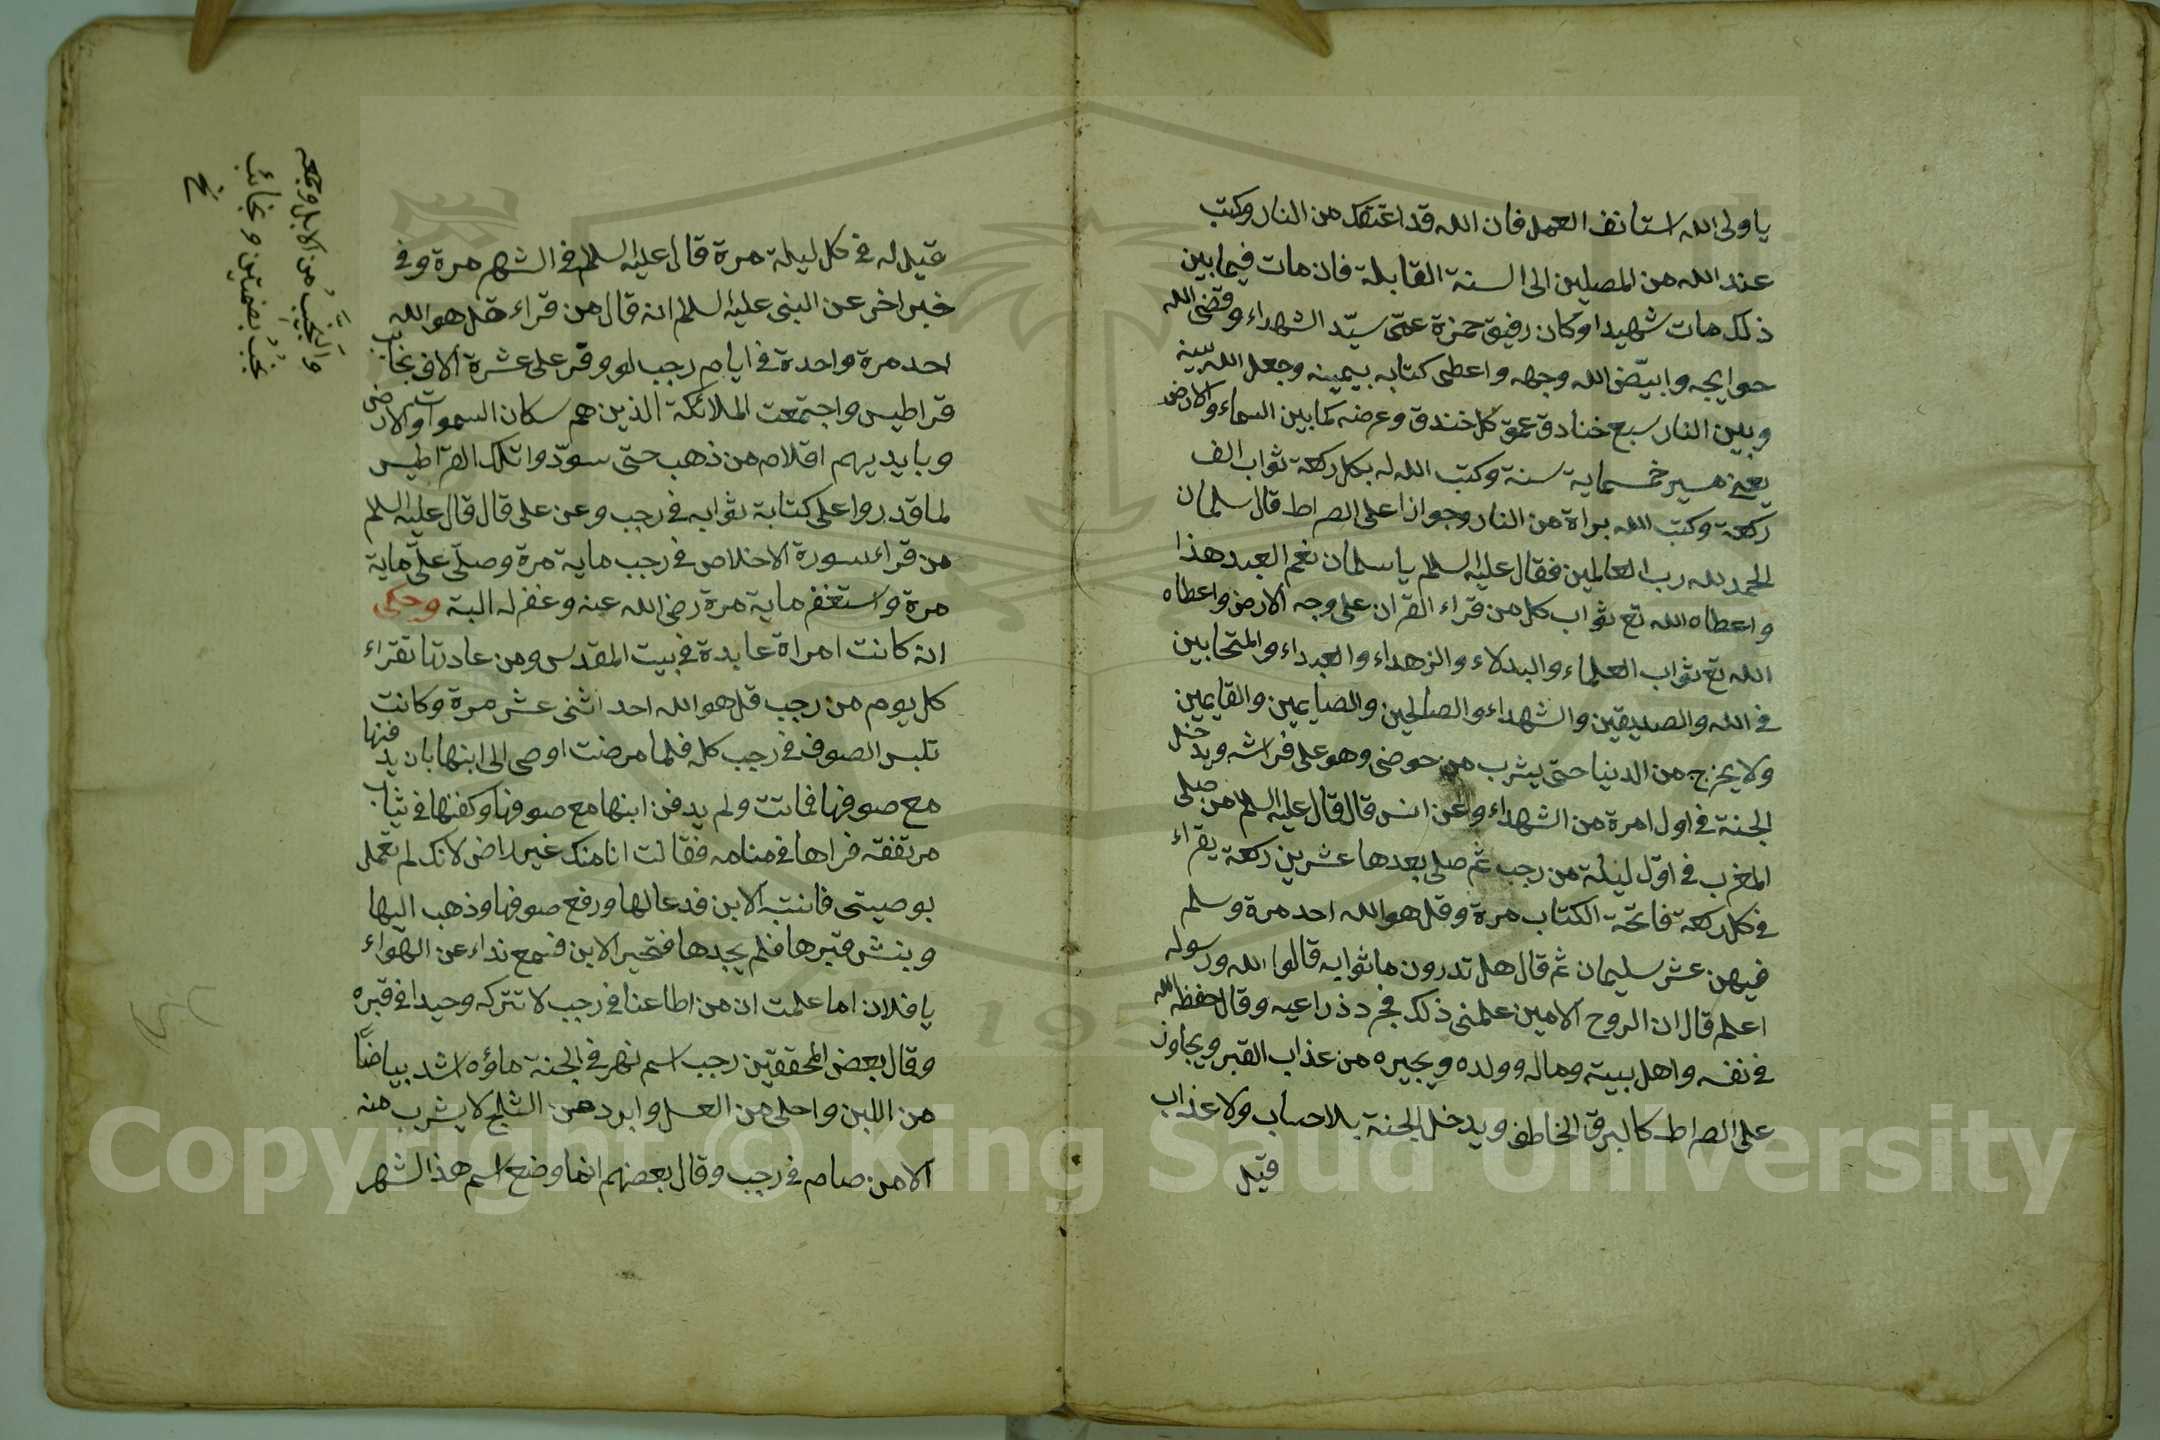 يا ولى الله استانف العمل فان الله قد اعتقك من النار وكتب
عند الله من المصلين الى السنة القابلة فان مات فيما بين
ذلك مات شهيدا وكان رفيق حمزة عمّى سيّد الشهداء وقضى الله
حوايجه وابيّض الله وجهه واعطى كتابه بيمينه وجعل الله بينه
وبين النار سبع خنادق عمق كل خندق وعرضه كما بين السماء والارض
يعنى مسير خمسماية سنة وكتب الله له بكل ركعة ثواب الف
ركعة وكتب الله براة من النار وجوازا على الصراط قال سلمان
الحمد لله رب العالمين فقال عليه السلم يا سلمان نعم العبد هذا
واعطاه الله تع ثواب كل من قراء القران على وجه الارض واعطاه
الله تع ثواب العلماء والبدلاء والزهداء والعبداء والمتحابين
فى الله والصديقين والشهداء والصالحين والصايمين والقايمين
ولا يخرج من الدنيا حتى يشرب من حوضى وهو على فراشه ويدخل
الجنة فى اول امرة من الشهداء وعن انس قال قال عليه السلم من صلى
المغرب فى اوّل ليلة من رجب ثم صلى بعدها عشرين ركعة يقراء
فى كل ركعة فاتحة الكتاب مرة وقل هو الله احد مرة وسلم
فيهن عشر سليمان ثم قال هل تدرون ما ثوابه قالوا الله ورسوله
اعلم قال ان الروح الامين علمنى ذلك فجرد ذراعيه وقال حفظه الله
فى نفسه واهل بيته وماله وولده ويجيره من عذاب القبر ويجاوز
على الصراط كالبرق الخاطف ويدخل الجنة بلا حساب ولا عذاب
قيل
قيل له فى كل ليلة مرة قال عليه السلم فى الشهر مرة وفى
خبر اخر عن النبى عليه السلم انه قال من قراء قل هو الله
احد مرة واحدة فى ايام رجب لو وقر على عشرة الاف نجائب
قراطيس واجتمعت الملائكة الذين هم سكان السموات والارض
وبايديهم اقلام من ذهب حتى سوّدوا تلك القراطيس
لما قدروا على كتابة ثوابه فى رجب وعن على قال قال عليه السلم
من قراء سورة الاخلاص فى رجب ماية مرة وصلّى علىّ ماية
مرة واستغفر ماية مرة رضى الله عنه وغفر له البتة وحكى
انه كانت امراة عابدة فى بيت المقدس ومن عادتها تقراء
كل يوم من رجب قل هو الله احد اثنى عشر مرة وكانت
تلبس الصوف فى رجب كله فلما مرضت اوصى الى ابنها بان يدفنها
مع صوفها فماتت ولم يدفن ابنها مع صوفها وكفنها فى ثياب
مرتفقه فراها فى منامه فقالت انا منك غير راض لانك لم تعمل
بوصيتى فانتبه الابن فدعا لها ورفع صوفها وذهب اليها
وينش قبرها فلم يجدها فتحير الابن فسمع نداء عن الهواء
يا فلان اما علمت ان من اطاعنا فى رجب لا تتركه وحيدا فى قبره
وقال بعض المحققين رجب اسم نهر فى الجنة ماؤه اشد بياضًا
من اللبن واحلى من العسل وابرد من الثلج لا يشرب منه
الا من صام فى رجب وقال بعضهم انما وضع اسم هذا الشهر
والنُّجُبُ من الابل وجمعه
نُجُبٌ بضمتين ونجائب
Copyright © King Saud University
1957